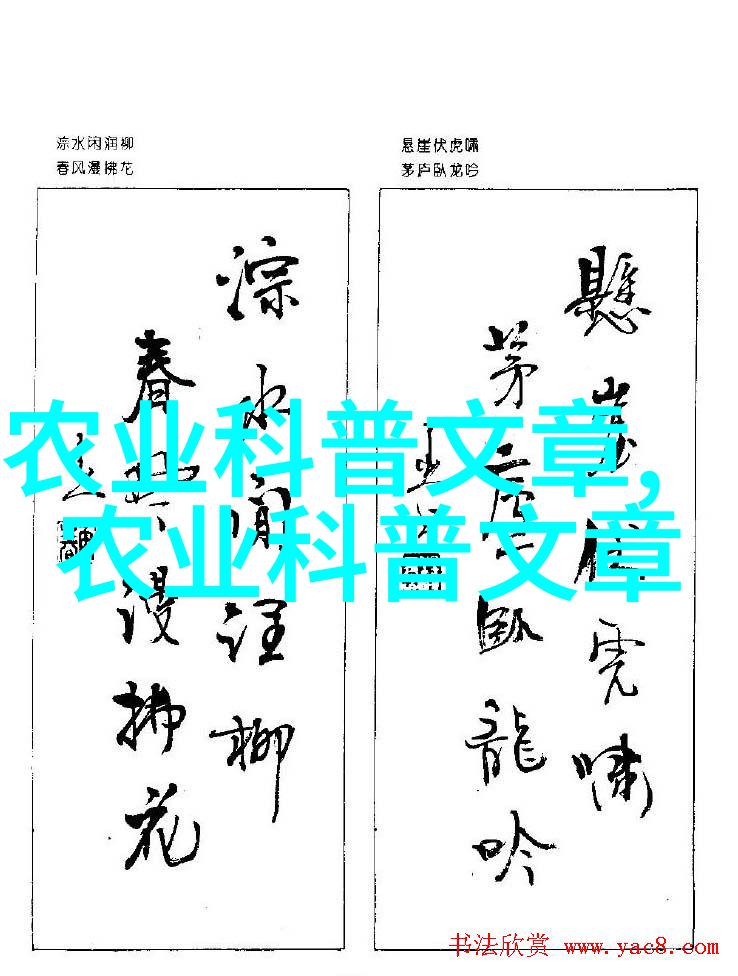 淙水闲润柳
春风漫拂花
悬崖伏虎啸
茅庐卧龙吟
淙水闲润柳
春风漫拂花
懸崖伏虎嘯
茅庐卧龍吟
农业科普文章,
农业科普文章
书法欣赏 www.yac8.com